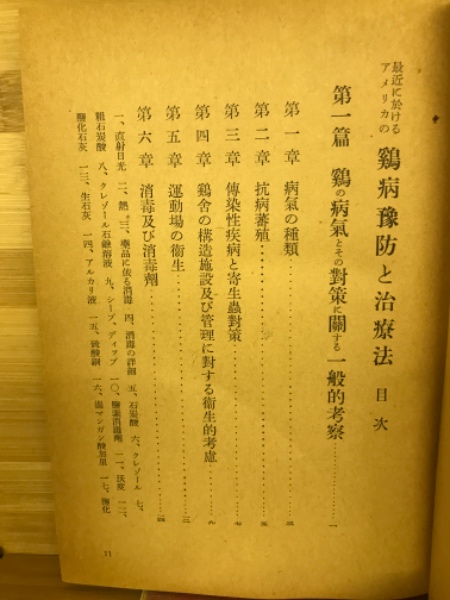 最近に於ける
アメリカの
鷄病豫防と治療法 目次
第一篇 鷄の病氣とその對策に關する一般的考察 一
第一章 病氣の種類 三
第二章 抗病蕃殖 五
第三章 傳染性疾病と寄生蟲對策 七
第四章 鷄舍の構造施設及び管理に對する衞生的考慮 九
第五章 運動場の衞生 一三
第六章 消毒及び消毒劑 一四
一、直射日光 二、熱 三、藥品に依る消毒 四、消毒の詳細 五、石炭酸 六、クレゾール 七、
粗石炭酸 八、クレゾール石鹼溶液 九、シープ、ディップ 一〇、鹽素消毒劑 一一、沃度 一二、
鹽化石灰 一三、生石灰 一四、アルカリ液 一五、硫酸銅 一六、過マンガン酸加里 一七、鹽化
11